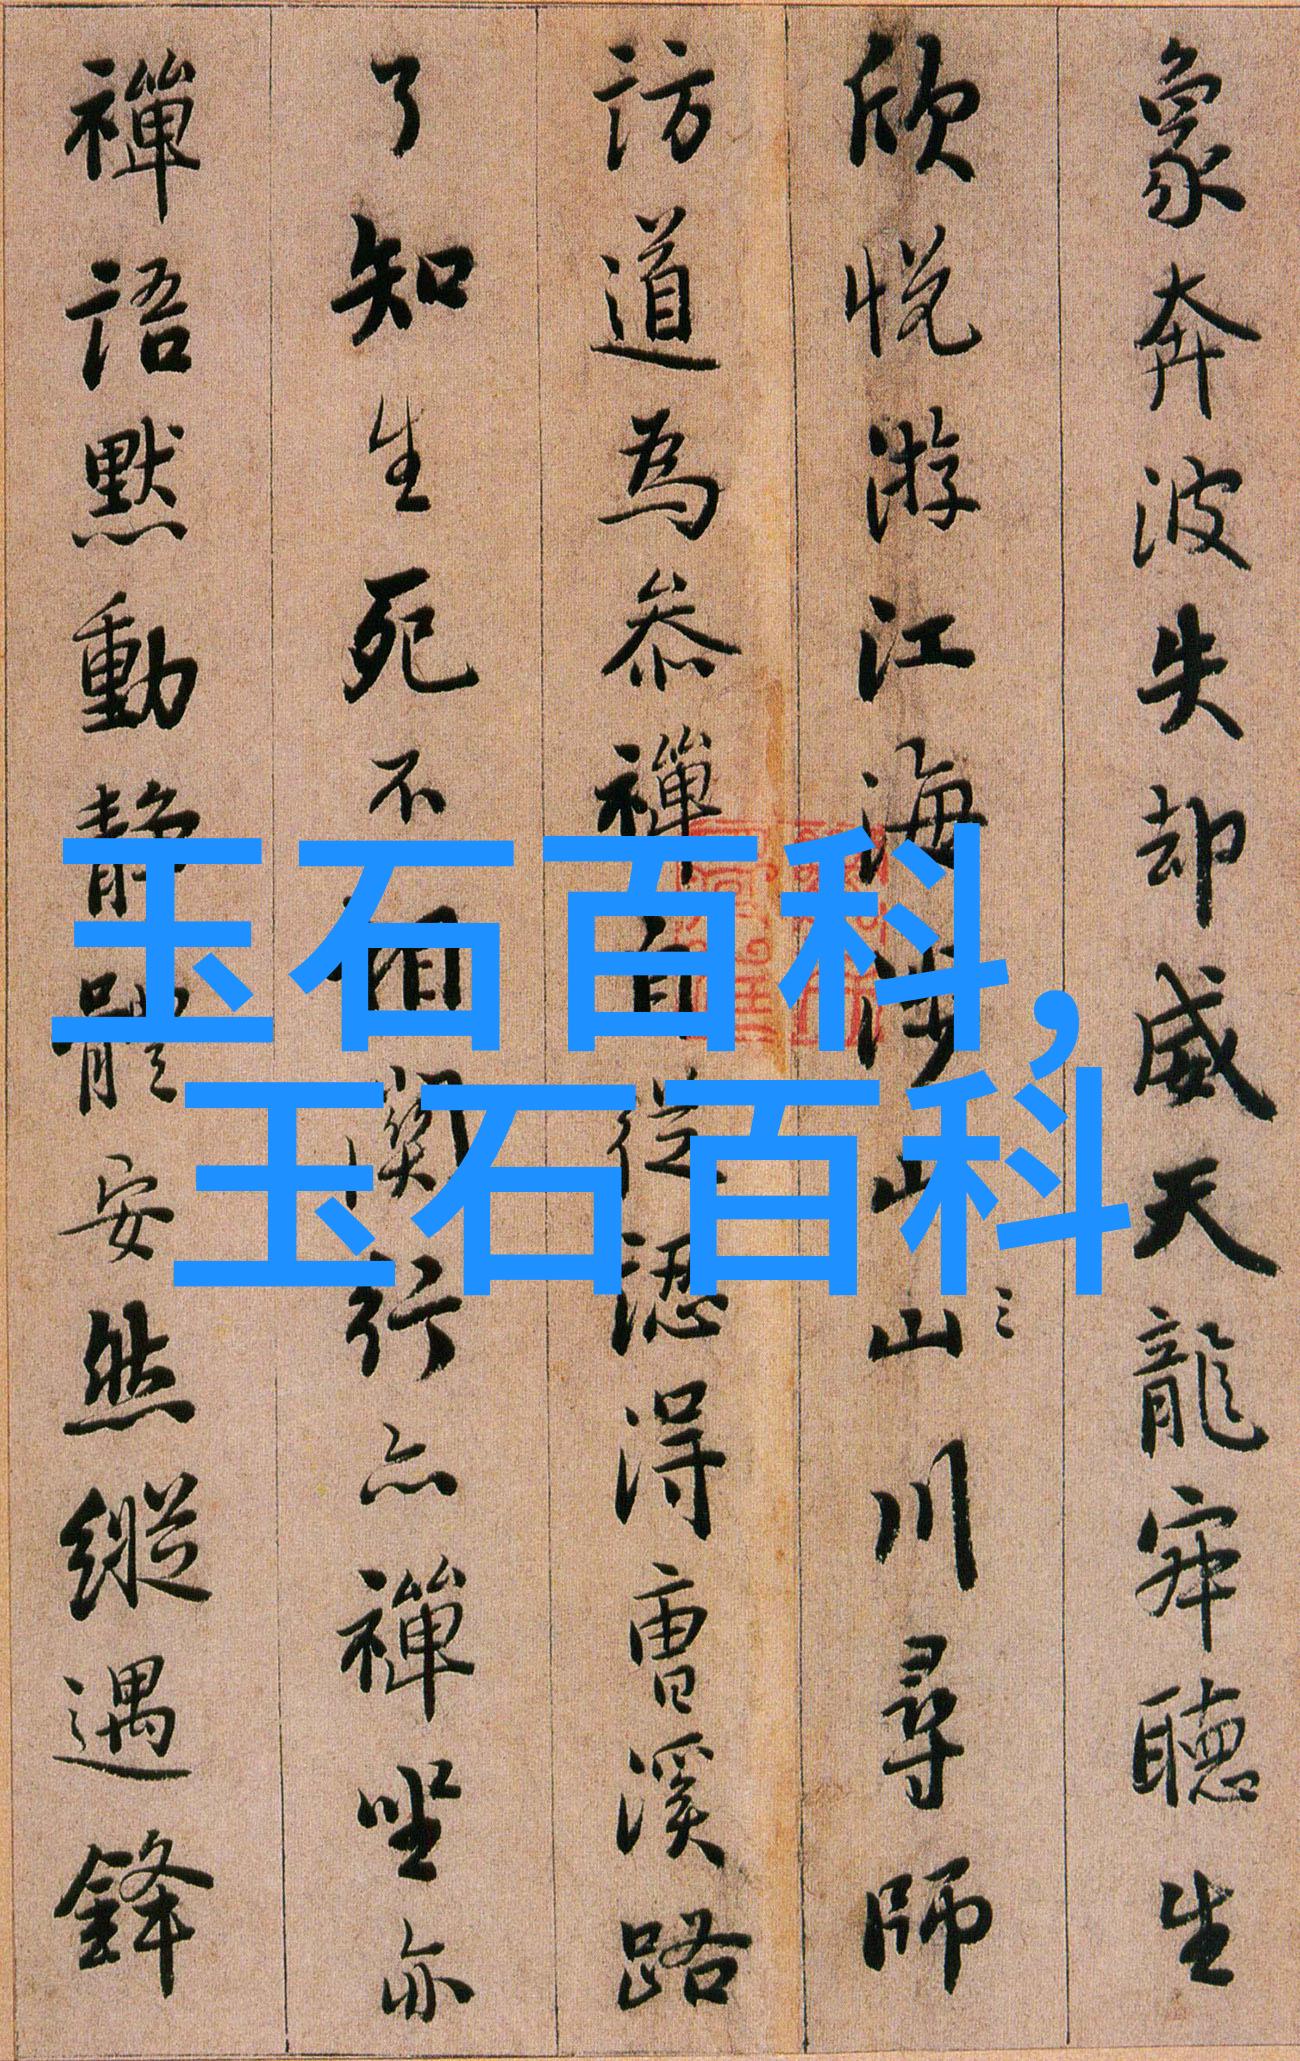 象奔波失却威天龍寂聽生
欣悦游江海涉山山川尋師
訪道為參禪自從認得曹溪路
了知生死不相関行亦禪坐亦
禪語默動靜體安然縱遇鋒
玉石百科，
玉石百科